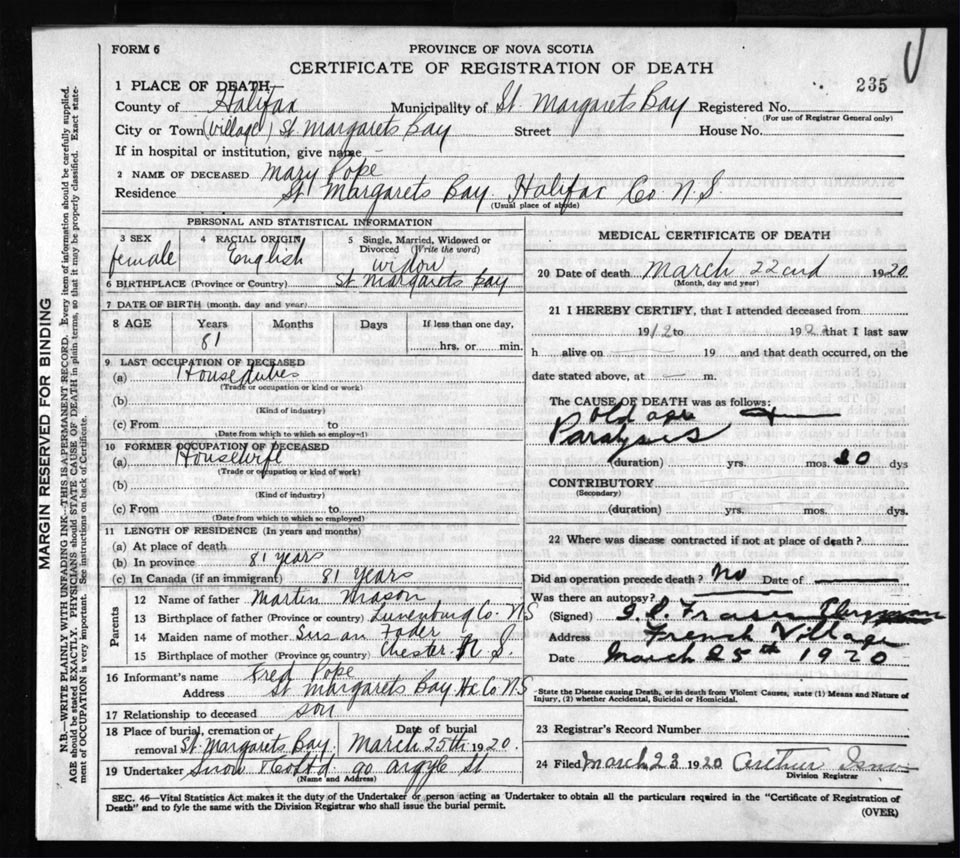 FORM 6
PROVINCE OF NOVA SCOTIA
CERTIFICATE OF REGISTRATION OF DEATH
235
1 PLACE OF DEATH
County of Halifax Municipality of St. Margarets Bay Registered No.
(For use of Registrar General only)
City or Town (village) St Margarets Bay Street House No.
If in hospital or institution, give name
2 NAME OF DECEASED Mary Pope
Residence St Margarets Bay Halifax Co. N S
(Usual place of abode)
PERSONAL AND STATISTICAL INFORMATION
3 SEX 4 RACIAL ORIGIN 5 Single, Married, Widowed or Divorced (Write the word)
female English widow
6 BIRTHPLACE (Province or Country) St Margarets bay
7 DATE OF BIRTH (month, day and year)
8 AGE Years Months Days If less than one day,
81 hrs. or min.
9 LAST OCCUPATION OF DECEASED
(a) House duties
(Trade or occupation or kind or work)
(b)
(Kind of industry)
(c) From to
(Date from which to which so employed)
10 FORMER OCCUPATION OF DECEASED
(a) Housewife
(Trade or occupation or kind of work)
(b)
(Kind of industry)
(c) From to
(Date from which to which so employed)
11 LENGTH OF RESIDENCE (In years and months)
(a) At place of death
(b) In province 81 years
(c) In Canada (if an immigrant) 81 years
Parents
12 Name of father Martin Mason
13 Birthplace of father (Province or country) Lunenburg Co. N S
14 Maiden name of mother Susan Foder
15 Birthplace of mother (Province or country) Chester N. S.
16 Informant's name Fred Pope
Address St Margarets Bay Hx Co N S
17 Relationship to deceased son
18 Place of burial, cremation or removal St. Margarets Bay. Date of burial March 25th 1920.
19 Undertaker Snow & Co Ltd 90 Argyle St
(Name and Address)
MEDICAL CERTIFICATE OF DEATH
20 Date of death March 22nd 1920
(Month, day and year)
21 I HEREBY CERTIFY, that I attended deceased from
1912 to 192 that I last saw
h alive on 19 and that death occurred, on the
date stated above, at m.
The CAUSE OF DEATH was as follows:
old age
Paralysis
(duration) yrs. mos. 20 dys
CONTRIBUTORY
(Secondary)
(duration) yrs. mos. dys.
22 Where was disease contracted if not at place of death?
Did an operation precede death? No Date of
Was there an autopsy?
(Signed)
Address French Village
Date March 25th 1920
State the Disease causing Death, or in death from Violent Causes, state (1) Means and Nature of
Injury, (2) whether Accidental, Suicidal or Homicidal.
23 Registrar's Record Number
24 Filed March 23 1920 Arthur
Division Registrar
SEC. 46—Vital Statistics Act makes it the duty of the Undertaker or person acting as Undertaker to obtain all the particulars required in the "Certificate of Registration of
Death" and to fyle the same with the Division Registrar who shall issue the burial permit.
(OVER)
MARGIN RESERVED FOR BINDING
N.B.—WRITE PLAINLY WITH UNFADING INK—THIS IS A PERMANENT RECORD. Every item of information should be carefully supplied.
AGE should be stated EXACTLY. PHYSICIANS should STATE CAUSE OF DEATH in plain terms, so that it may be properly classified. Exact statement
of OCCUPATION is very important. See instructions on back of Certificate.